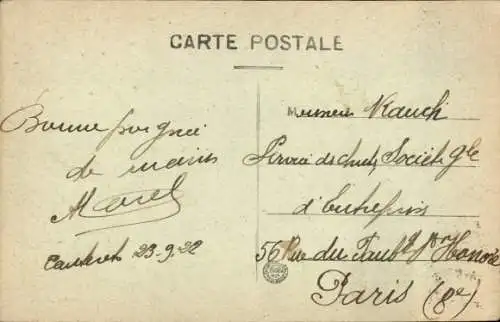 CARTE POSTALE
Bonne poignée
de mains
Morel
Cauterets 23-9-22
Monsieur Kauch
Service des Société Gle
d'Entreprises
56 Rue du Faubg St Honoré
Paris (8e)